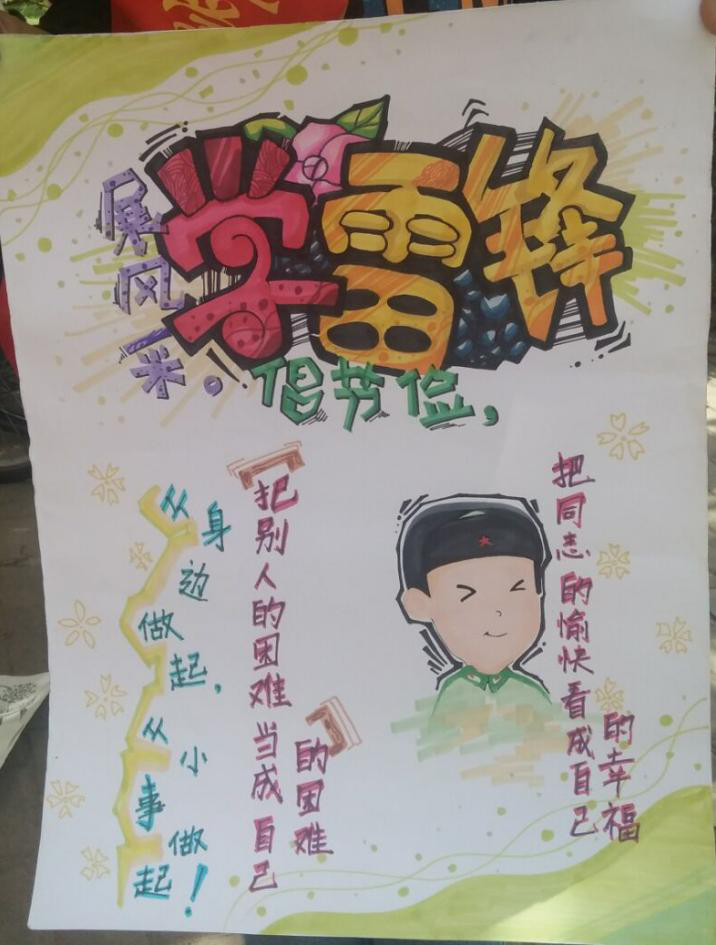 学雷锋
倡节俭，
展风采。
「把别人的困难当成自己
的困难」
把同志的愉快看成自己
的幸福
从身边做起，
从小事做起！